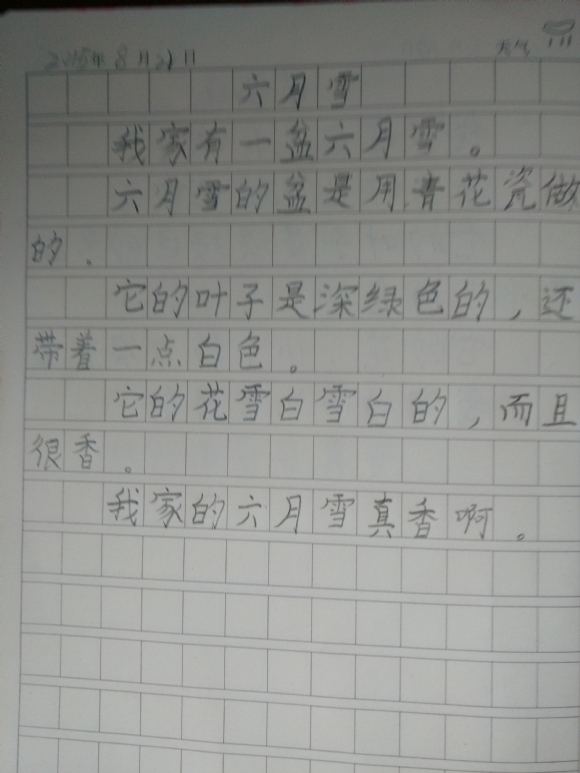 2015年8月21日 天气
六月雪
我家有一盆六月雪。
六月雪的盆是用青花瓷做
的.
它的叶子是深绿色的,还
带着一点白色。
它的花雪白雪白的,而且
很香。
我家的六月雪真香啊。